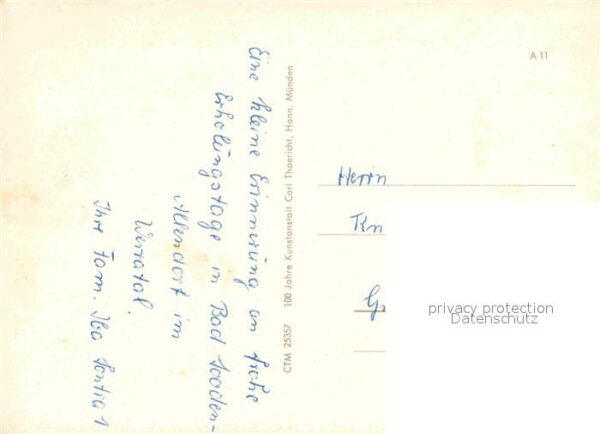 Eine kleine Erinnerung an frohe
Erholungstage in Bad Sooden-
Allendorf im
Werratal.
Ihre Fam. Ibo Sontra 1
CTM 25357 100 Jahre Kunstanstalt Carl Thoericht, Hann. Münden
A 11
Herrn
Kn
privacy protection
Datenschutz